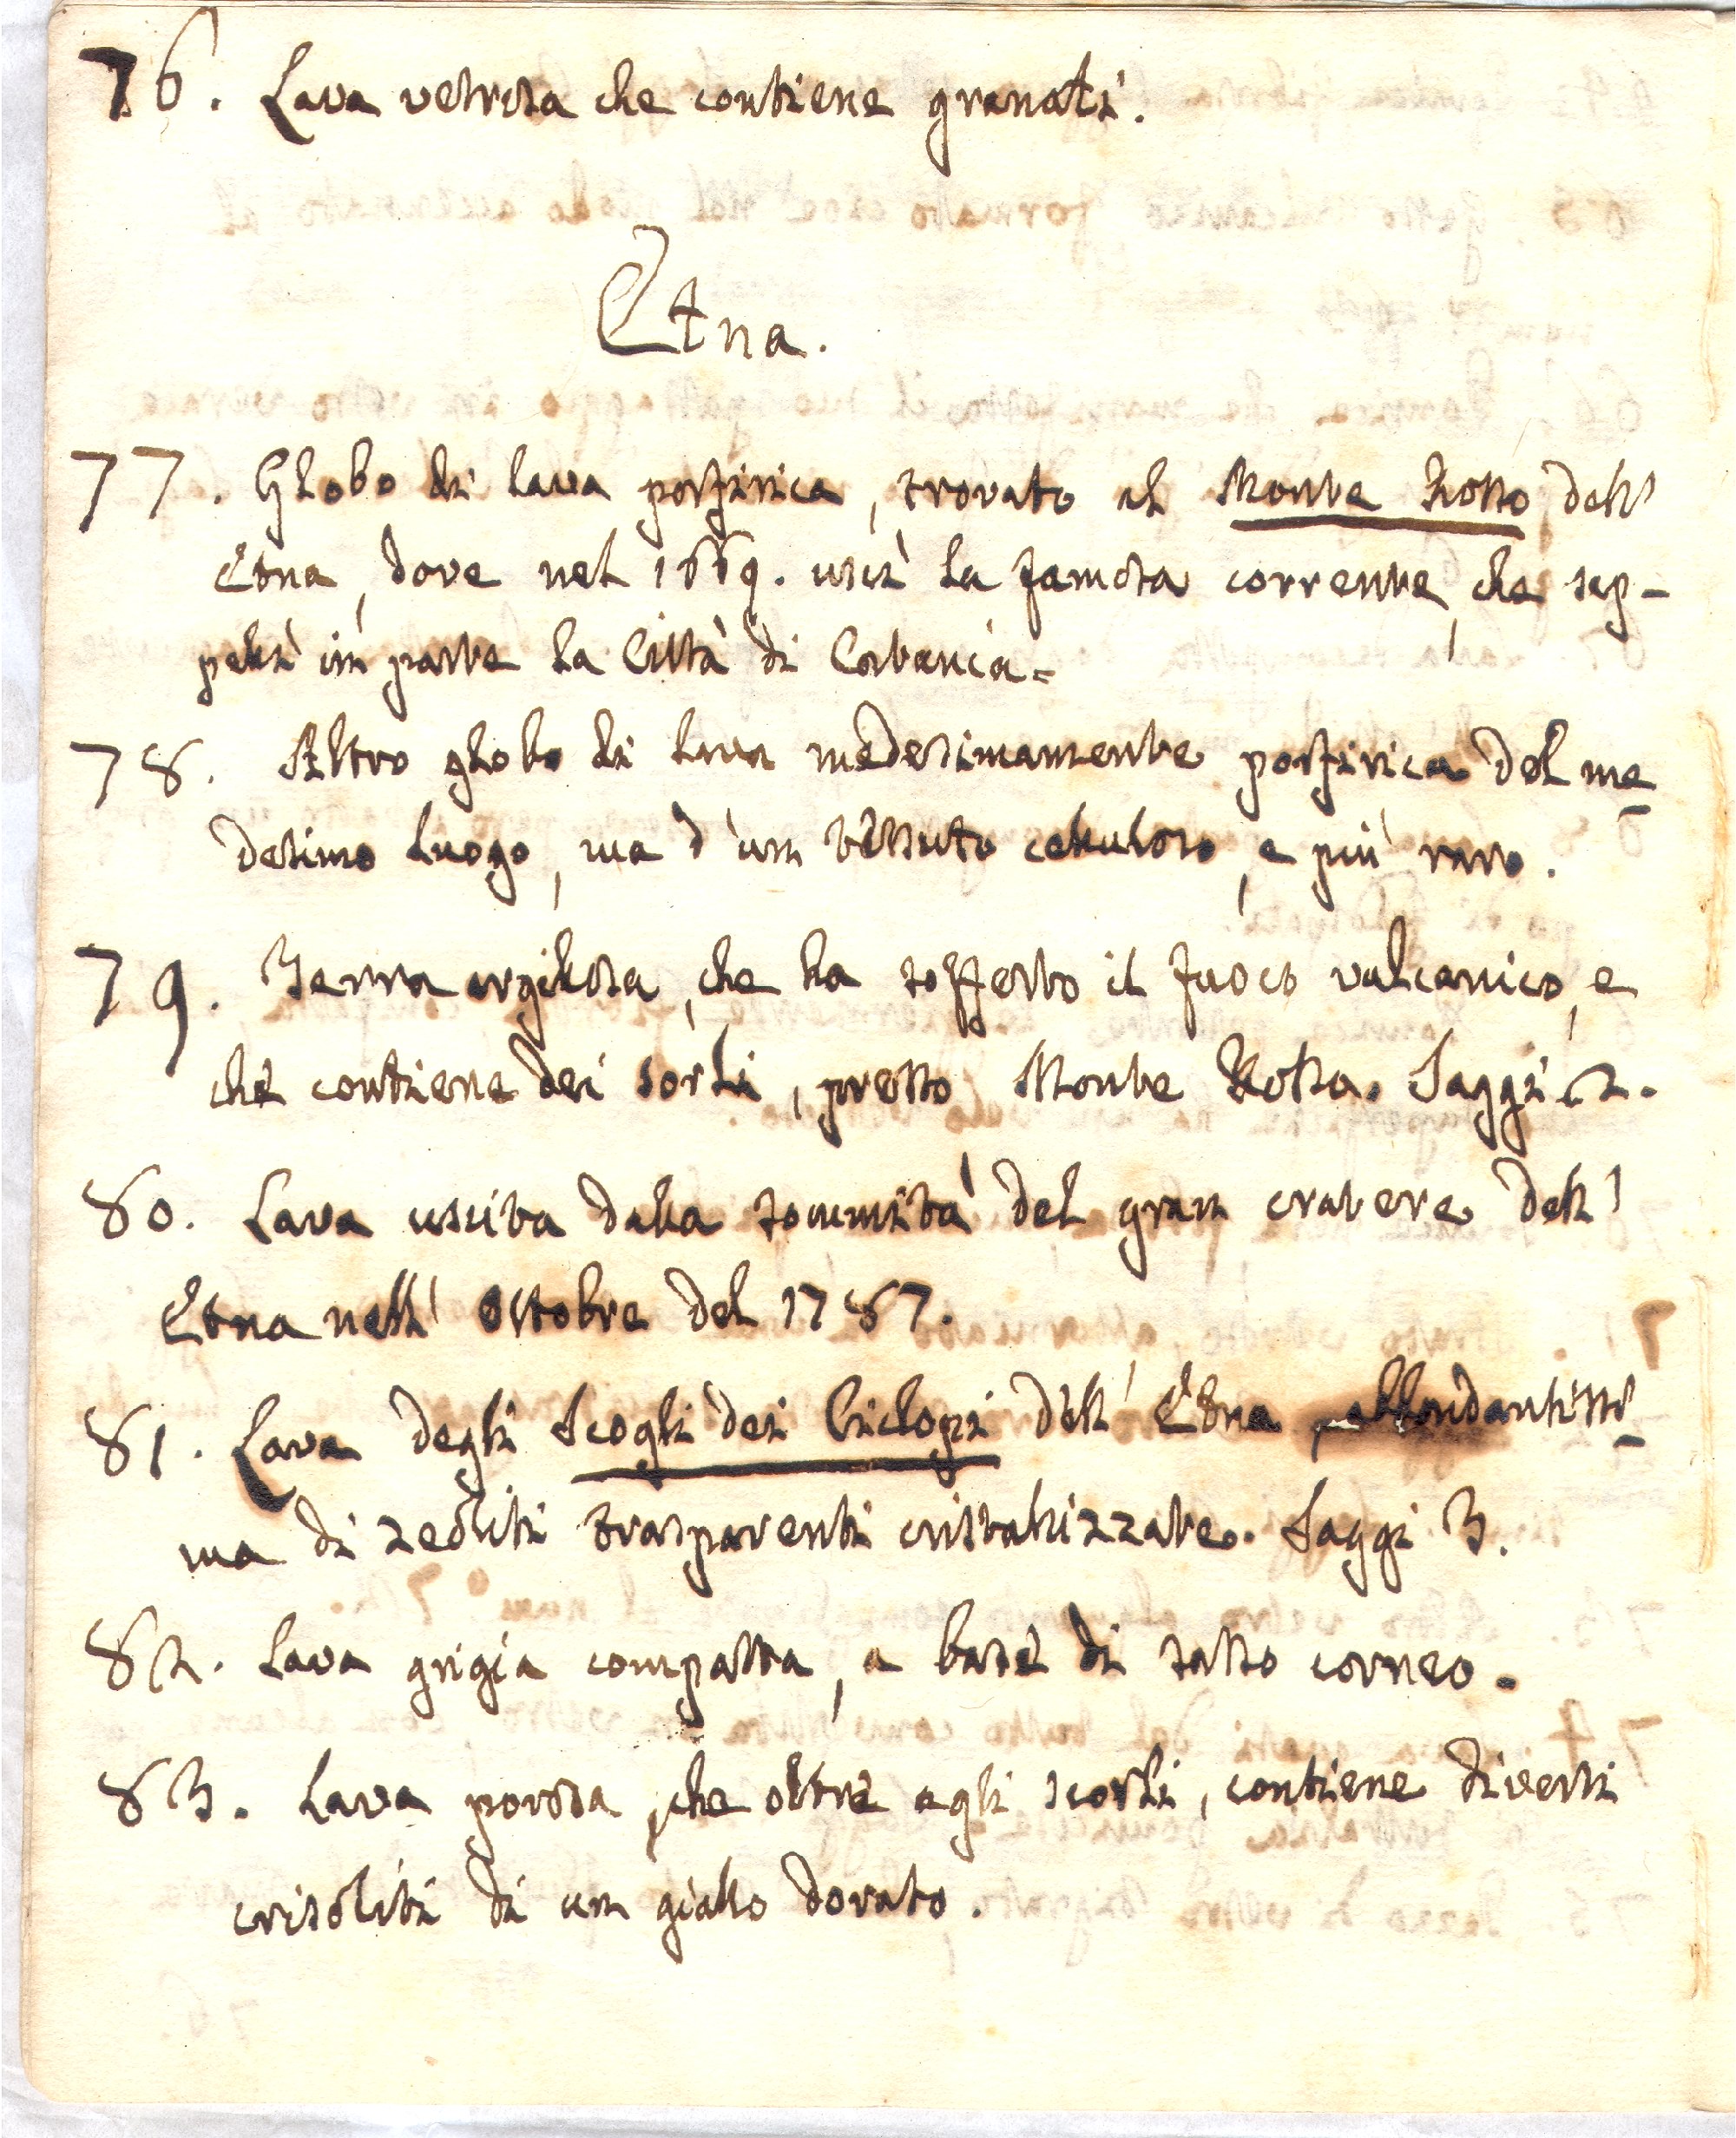 76. Lava vetrosa che contiene granati.
Etna.
77. Globo di lava porfirica, trovato al Monte Rosso dell'
Etna, dove nel 1669. uscì la famosa corrente, che sep-
pelì in parte la Città di Catania.
78. Altro globo di lava medesimamente porfirica del me
desimo luogo, ma d'un tessuto celluloso, e più raro.
79. Terra argillosa, che ha sofferto il fuoco vulcanico, e
che contiene dei sorli, presso Monte Rosso. Saggi 2.
80. Lava uscita dalla sommità del gran cratere dell'
Etna nell' Ottobre del 1787.
81. Lava degli Scogli dei Ciclopi dell' Etna, abbondantissi
ma di zeoliti trasparenti cristallizzate. Saggi 3.
82. Lava grigia compatta, a base di sasso corneo.
83. Lava porosa, che oltre agli scorli, contiene diversi
crisoliti di un giallo dorato.